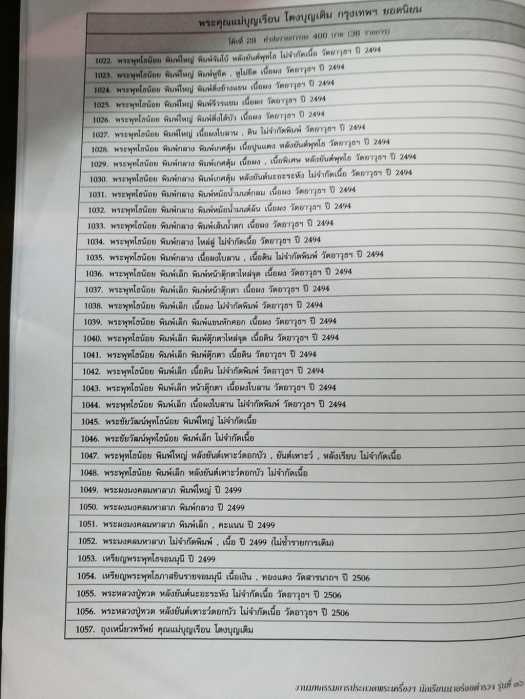 พระคุณแม่บุญเรือน โตงบุญเติม กรุงเทพฯ ยอดนิยม
โต๊ะที่ 29 ค่าส่งรายการละ 400 บาท (36 รายการ)
1022. พระพุทโธน้อย พิมพ์ใหญ่ พิมพ์จัมโบ้ หลังยันต์พุทโธ ไม่จำกัดเนื้อ วัดอาวุธฯ ปี 2494
1023. พระพุทโธน้อย พิมพ์ใหญ่ พิมพ์หูขีด , หูไม่ขีด เนื้อผง วัดอาวุธฯ ปี 2494
1024. พระพุทโธน้อย พิมพ์ใหญ่ พิมพ์ติ่งข้างแขน เนื้อผง วัดอาวุธฯ ปี 2494
1025. พระพุทโธน้อย พิมพ์ใหญ่ พิมพ์จีวรแขน เนื้อผง วัดอาวุธฯ ปี 2494
1026. พระพุทโธน้อย พิมพ์ใหญ่ พิมพ์ติ่งใต้บัว เนื้อผง วัดอาวุธฯ ปี 2494
1027. พระพุทโธน้อย พิมพ์ใหญ่ เนื้อผงใบลาน , ดิน ไม่จำกัดพิมพ์ วัดอาวุธฯ ปี 2494
1028. พระพุทโธน้อย พิมพ์กลาง พิมพ์เกศตุ้ม เนื้อปูนแดง หลังยันต์พุทโธ วัดอาวุธฯ ปี 2494
1029. พระพุทโธน้อย พิมพ์กลาง พิมพ์เกศตุ้ม เนื้อผง , เนื้อพิเศษ หลังยันต์พุทโธ วัดอาวุธฯ ปี 2494
1030. พระพุทโธน้อย พิมพ์กลาง พิมพ์เกศตุ้ม หลังยันต์นะอะระหัง ไม่จำกัดเนื้อ วัดอาวุธฯ ปี 2494
1031. พระพุทโธน้อย พิมพ์กลาง พิมพ์หม้อน้ำมนต์กลม เนื้อผง วัดอาวุธฯ ปี 2494
1032. พระพุทโธน้อย พิมพ์กลาง พิมพ์หม้อน้ำมนต์ตัน เนื้อผง วัดอาวุธฯ ปี 2494
1033. พระพุทโธน้อย พิมพ์กลาง พิมพ์เส้นน้ำตก เนื้อผง วัดอาวุธฯ ปี 2494
1034. พระพุทโธน้อย พิมพ์กลาง ไหล่คู่ ไม่จำกัดเนื้อ วัดอาวุธฯ ปี 2494
1035. พระพุทโธน้อย พิมพ์กลาง เนื้อผงใบลาน , เนื้อดิน ไม่จำกัดพิมพ์ วัดอาวุธฯ ปี 2494
1036. พระพุทโธน้อย พิมพ์เล็ก พิมพ์หน้าตุ๊กตาไหล่จุด เนื้อผง วัดอาวุธฯ ปี 2494
1037. พระพุทโธน้อย พิมพ์เล็ก พิมพ์หน้าตุ๊กตา เนื้อผง วัดอาวุธฯ ปี 2494
1038. พระพุทโธน้อย พิมพ์เล็ก เนื้อผง ไม่จำกัดพิมพ์ วัดอาวุธฯ ปี 2494
1039. พระพุทโธน้อย พิมพ์เล็ก พิมพ์แขนหักศอก เนื้อผง วัดอาวุธฯ ปี 2494
1040. พระพุทโธน้อย พิมพ์เล็ก พิมพ์ตุ๊กตาไหล่จุด เนื้อดิน วัดอาวุธฯ ปี 2494
1041. พระพุทโธน้อย พิมพ์เล็ก พิมพ์ตุ๊กตา เนื้อดิน วัดอาวุธฯ ปี 2494
1042. พระพุทโธน้อย พิมพ์เล็ก เนื้อดิน ไม่จำกัดพิมพ์ วัดอาวุธฯ ปี 2494
1043. พระพุทโธน้อย พิมพ์เล็ก หน้าตุ๊กตา เนื้อผงใบลาน วัดอาวุธฯ ปี 2494
1044. พระพุทโธน้อย พิมพ์เล็ก เนื้อผงใบลาน ไม่จำกัดพิมพ์ วัดอาวุธฯ ปี 2494
1045. พระชัยวัฒน์พุทโธน้อย พิมพ์ใหญ่ ไม่จำกัดเนื้อ
1046. พระชัยวัฒน์พุทโธน้อย พิมพ์เล็ก ไม่จำกัดเนื้อ
1047. พระพุทโธน้อย พิมพ์ใหญ่ หลังยันต์เฑาะว์ดอกบัว , ยันต์เฑาะว์ , หลังเรียบ ไม่จำกัดเนื้อ
1048. พระพุทโธน้อย พิมพ์เล็ก หลังยันต์เฑาะว์ดอกบัว ไม่จำกัดเนื้อ
1049. พระผงมงคลมหาลาภ พิมพ์ใหญ่ ปี 2499
1050. พระผงมงคลมหาลาภ พิมพ์กลาง ปี 2499
1051. พระผงมงคลมหาลาภ พิมพ์เล็ก , คะแนน ปี 2499
1052. พระมงคลมหาลาภ ไม่จำกัดพิมพ์ , เนื้อ ปี 2499 (ไม่ซ้ำรายการเดิม)
1053. เหรียญพระพุทโธจอมมุนี ปี 2499
1054. เหรียญพระพุทโธภาสชินราชจอมมุนี เนื้อเงิน , ทองแดง วัดสารนาถฯ ปี 2506
1055. พระหลวงปู่ทวด หลังยันต์นะอะระหัง ไม่จำกัดเนื้อ วัดอาวุธฯ ปี 2506
1056. พระหลวงปู่ทวด หลังยันต์เฑาะว์ดอกบัว ไม่จำกัดเนื้อ วัดอาวุธฯ ปี 2506
1057. ถุงเหนี่ยวทรัพย์ คุณแม่บุญเรือน โตงบุญเติม
งานมหกรรมการประกวดพระเครื่องฯ นักเรียนนายร้อยตำรวจ รุ่นที่ ๓๖